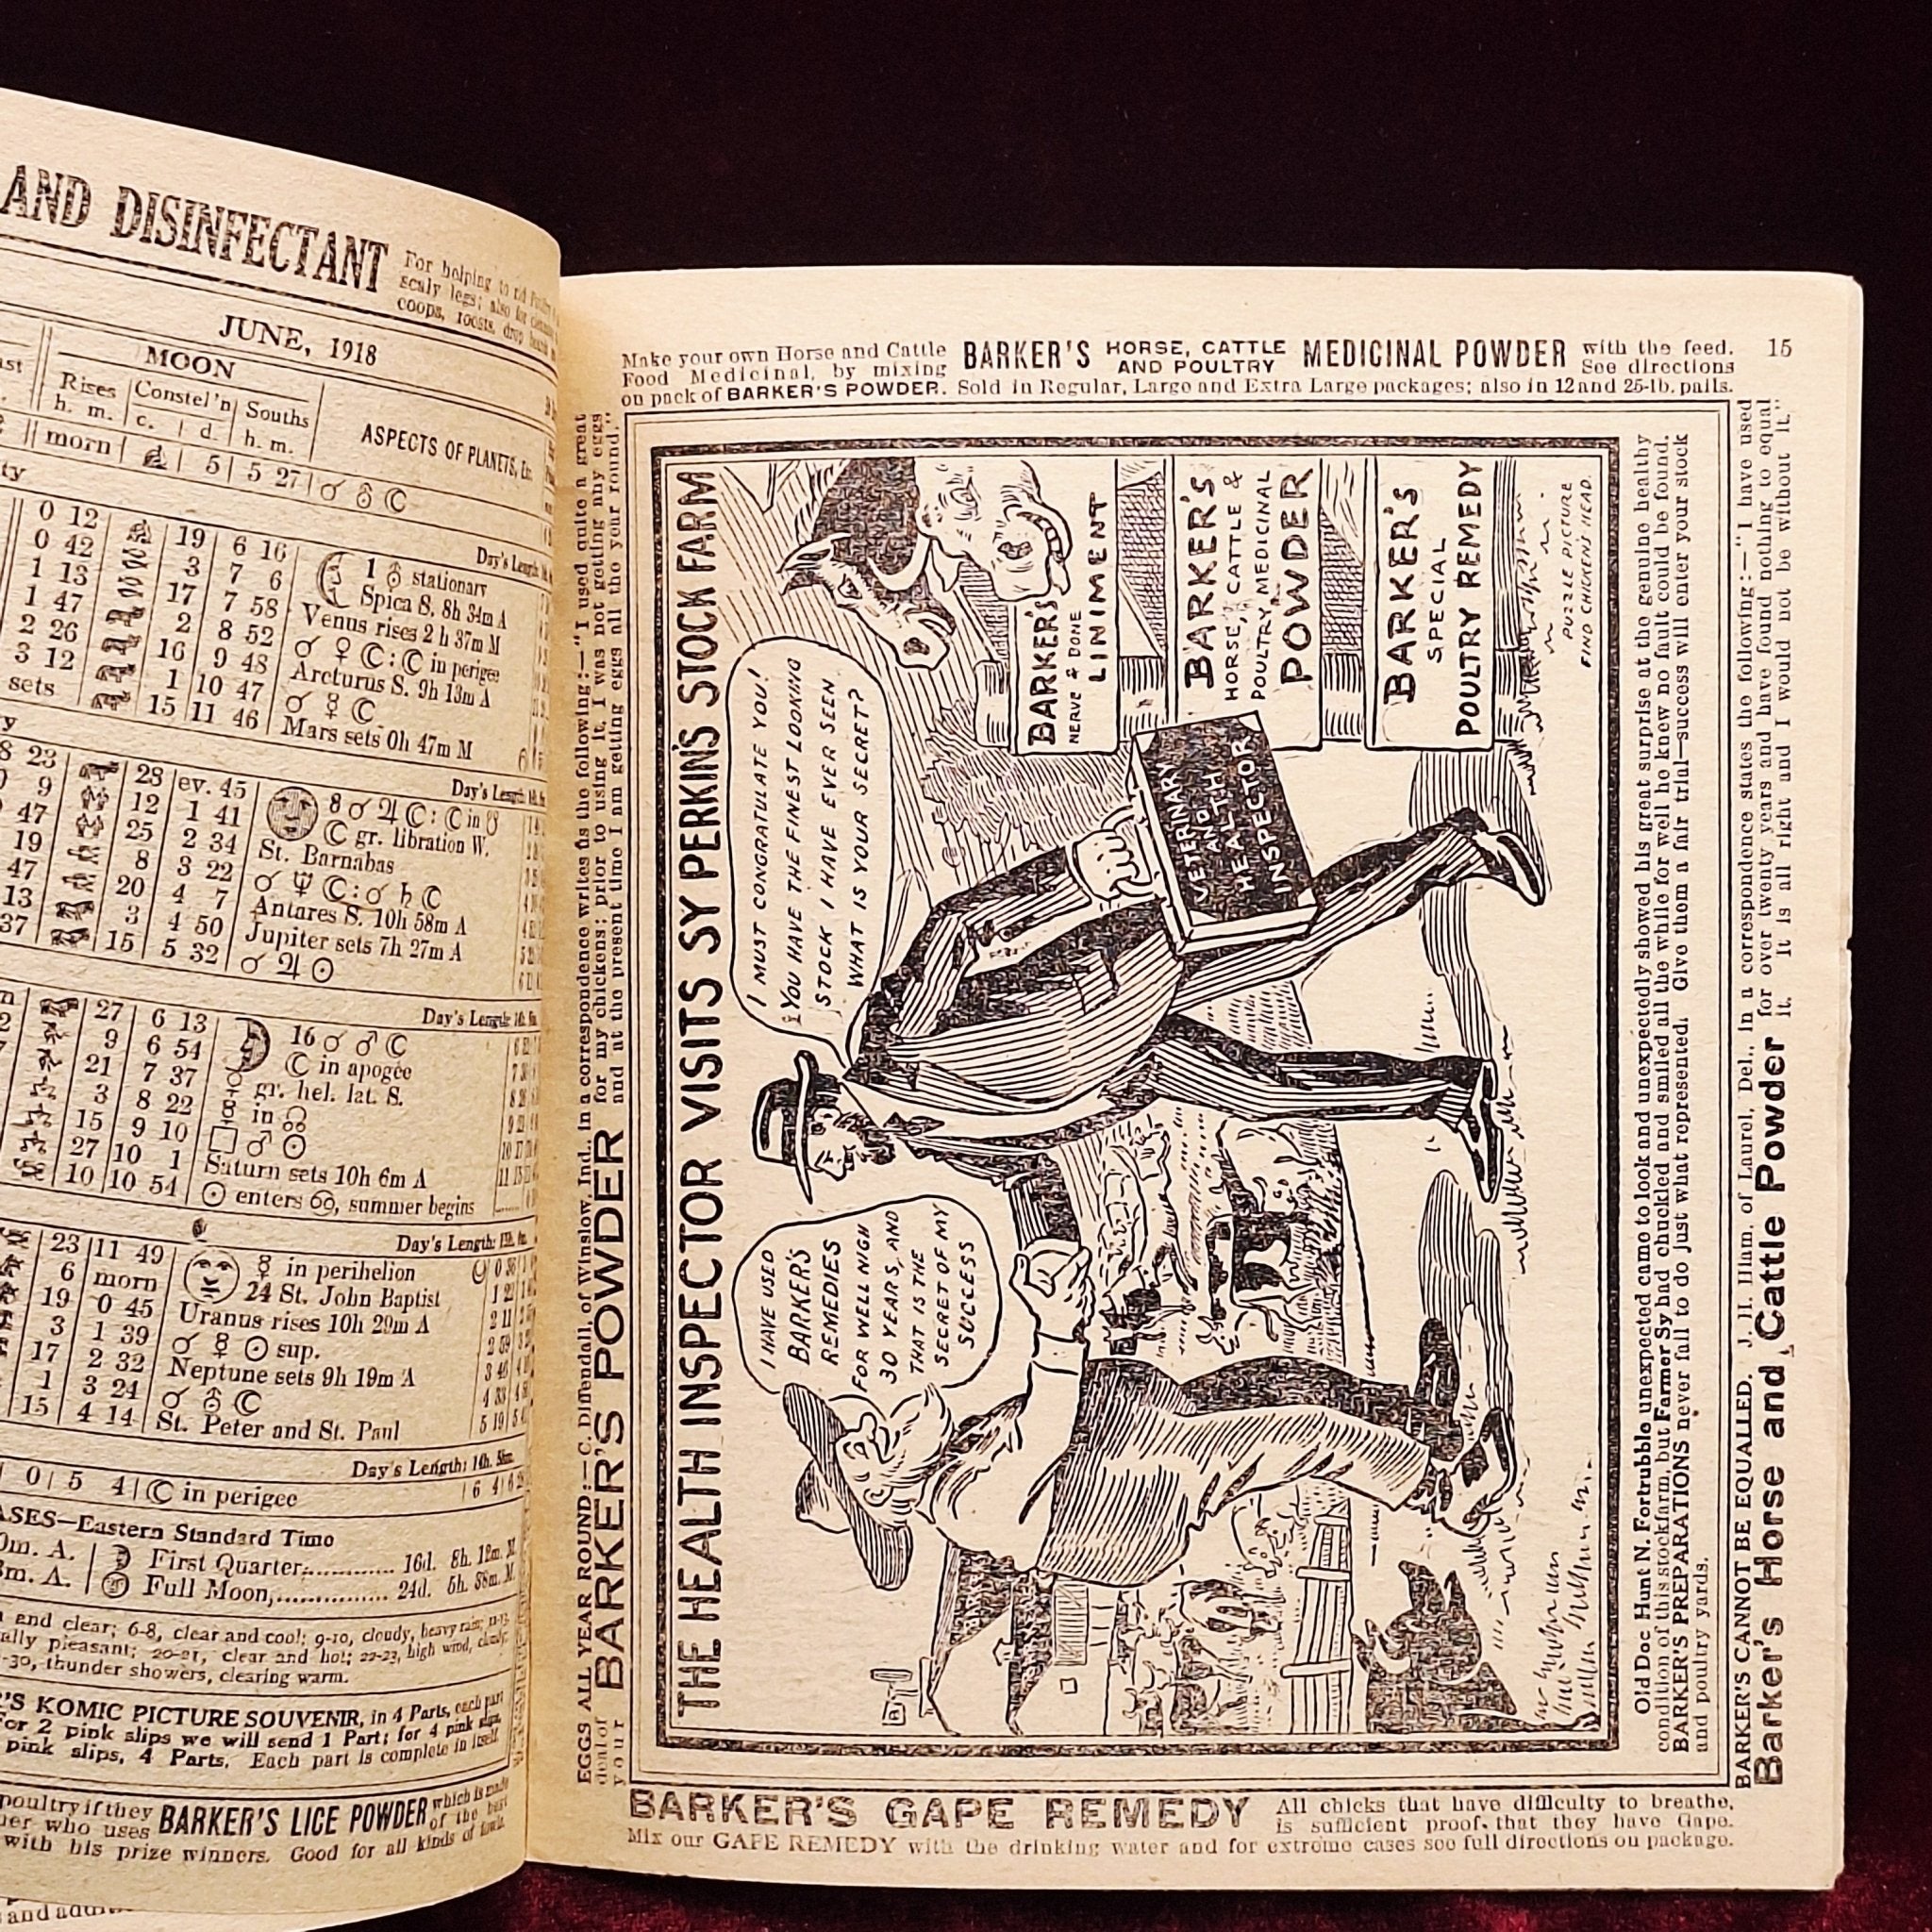 AND DISINFECTANT
For helping to rid
scaly legs; also for
coops, roosts, drop
JUNE, 1918
MOON
Rises Constel'n Souths
h. m. c. d. h. m.
ASPECTS OF PLANETS, Etc.
morn 5 5 27 ☌ ⛢ ☾
Day's Length:
0 12 19 6 16 1 ⛢ stationary
0 42 3 7 6 Spica S. 8h 34m A
1 13 17 7 58 Venus rises 2h 37m M
1 47 2 8 52 ☌ ♀ ☾: ☾ in perigee
2 26 16 9 48 Arcturus S. 9h 13m A
3 12 1 10 47 ☌ ☿ ☾
sets 15 11 46 Mars sets 0h 47m M
Day's Length:
8 23 28 ev. 45 8 ☌ ♃ ☾: ☾ in ☋
9 12 1 41 ☾ gr. libration W.
47 25 2 34 St. Barnabas
19 8 3 22 ☌ ♆ ☾: ☌ ♄ ☾
47 20 4 7 Antares S. 10h 58m A
13 3 4 50 Jupiter sets 7h 27m A
37 15 5 32 ☌ ♃ ☉
Day's Length:
27 6 13 16 ☌ ♂ ☾
9 6 54 ☾ in apogee
21 7 37 ☿ gr. hel. lat. S.
3 8 22 ☿ in ☊
15 9 10 □ ♂ ☉
27 10 1 Saturn sets 10h 6m A
10 10 54 ☉ enters ♋, summer begins
Day's Length:
23 11 49 ☿ in perihelion
6 morn 24 St. John Baptist
19 0 45 Uranus rises 10h 29m A
3 1 39 ☌ ☿ ☉ sup.
17 2 32 Neptune sets 9h 19m A
1 3 24 ☌ ⛢ ☾
15 4 14 St. Peter and St. Paul
Day's Length: 14h. 58m.
0 5 4 ☾ in perigee
ASES—Eastern Standard Time
m. A. First Quarter, 16d. 8h. 12m. M.
m. A. Full Moon, 24d. 5h. 38m. M.
and clear; 6-8, clear and cool; 9-10, cloudy, heavy rain; 11-13,
ally pleasant; 20-21, clear and hot; 22-23, high wind,
-30, thunder showers, clearing warm.
'S KOMIC PICTURE SOUVENIR, in 4 Parts, each part
for 2 pink slips we will send 1 Part; for 4 pink slips,
pink slips, 4 Parts. Each part is complete in itself.
poultry if they BARKER'S LICE POWDER which is made
er who uses of the best
with his prize winners. Good for all kinds of fowls.
Make your own Horse and Cattle BARKER'S HORSE, CATTLE AND POULTRY MEDICINAL POWDER with the feed. 15
Food Medicinal, by mixing See directions
on pack of BARKER'S POWDER. Sold in Regular, Large and Extra Large packages; also in 12 and 25-lb. pails.
EGGS ALL YEAR ROUND:—C. Diffendall, of Winslow, Ind., in a correspondence writes as the following:—"I used quite a great
deal of BARKER'S POWDER for my chickens; prior to using it, I was not getting any eggs
your and at the present time I am getting eggs all the year round."
THE HEALTH INSPECTOR VISITS SY PERKIN'S STOCK FARM
I HAVE USED
BARKER'S
REMEDIES
FOR WELL NIGH
30 YEARS, AND
THAT IS THE
SECRET OF MY
SUCCESS
I MUST CONGRATULATE YOU!
YOU HAVE THE FINEST LOOKING
STOCK I HAVE EVER SEEN
WHAT IS YOUR SECRET?
VETERINARY
AND
HEALTH
INSPECTOR
BARKER'S
NERVE & BONE
LINIMENT
BARKER'S
HORSE, CATTLE &
POULTRY MEDICINAL
POWDER
BARKER'S
SPECIAL
POULTRY REMEDY
PUZZLE PICTURE
FIND CHICKENS HEAD.
Old Doc Hunt N. Fortrubble unexpected came to look and unexpectedly showed his great surprise at the genuine healthy
condition of this stock farm, but Farmer Sy had chuckled and smiled all the while for well he knew no fault could be found.
BARKER'S PREPARATIONS never fail to do just what represented. Give them a fair trial—success will enter your stock
and poultry yards.
BARKER'S CANNOT BE EQUALLED. J. H. Elam, of Laurel, Del., in a correspondence states the following:—"I have used
Barker's Horse and Cattle Powder for over twenty years and have found nothing to equal
it. It is all right and I would not be without it."
BARKER'S GAPE REMEDY All chicks that have difficulty to breathe,
is sufficient proof that they have Gape.
Mix our GAPE REMEDY with the drinking water and for extreme cases see full directions on package.